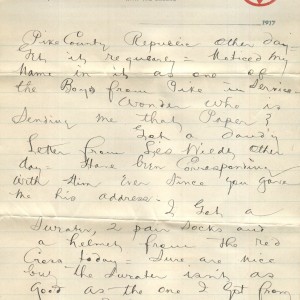 1917
Pike County Republic other day
Git it regurely = Noticed my
Name in it as one of
the Boys from Pike in Service -
Wonder who is
Sending me that Paper?
Got a dandy
Letter from Les other
day - Have bien Corresponding
with Him Ever Since you gave
me his address.
I Got a
Swrater, 2 pair socks and
a helmet from the red
Cross today = Sure are nice
but the swrater isnt as
Good as the one I got from